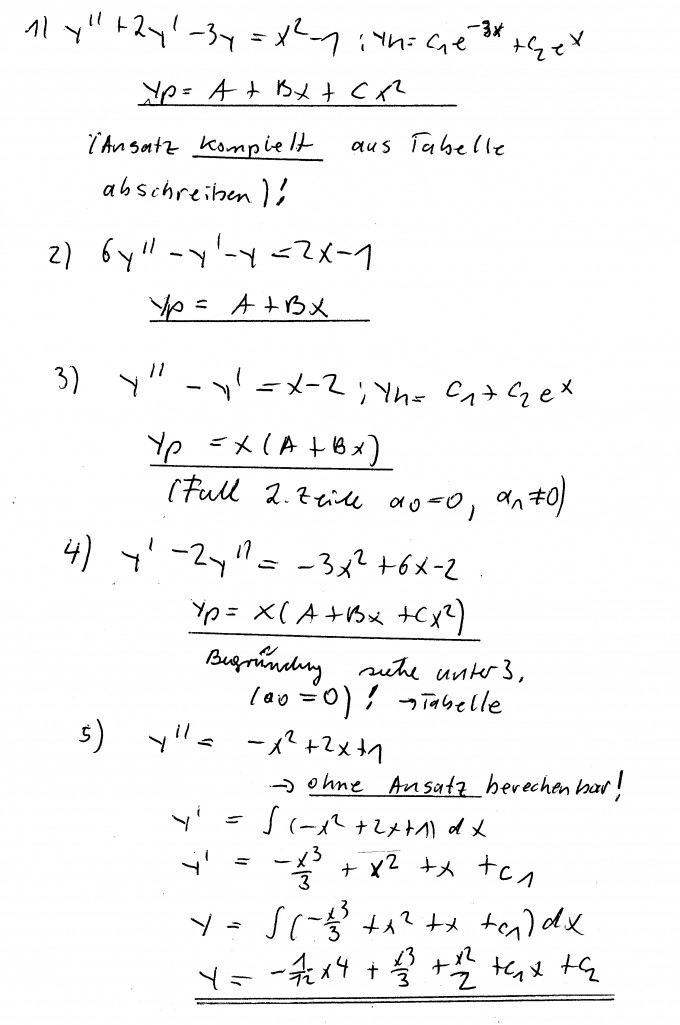 1) y'' + 2y' - 3y = x² - 1 ; yh = c₁e⁻³ˣ + c₂eˣ
yp = A + Bx + Cx²
(Ansatz komplett aus Tabelle
abschreiben)!
2) 6y'' - y' - y = 2x - 1
yp = A + Bx
3) y'' - y' = x - 2 ; yh = c₁ + c₂eˣ
yp = x(A + Bx)
(Fall 2. Zeile a₀ = 0, a₁ ≠ 0)
4) y' - 2y'' = -3x² + 6x - 2
yp = x(A + Bx + Cx²)
Begründung siehe unter 3,
(a₀ = 0)! → Tabelle
5) y'' = -x² + 2x + 1
→ ohne Ansatz berechenbar!
y' = ∫(-x² + 2x + 1) dx
y' = -x³/3 + x² + x + c₁
y = ∫(-x³/3 + x² + x + c₁) dx
y = -1/12 x⁴ + x³/3 + x²/2 + c₁x + c₂